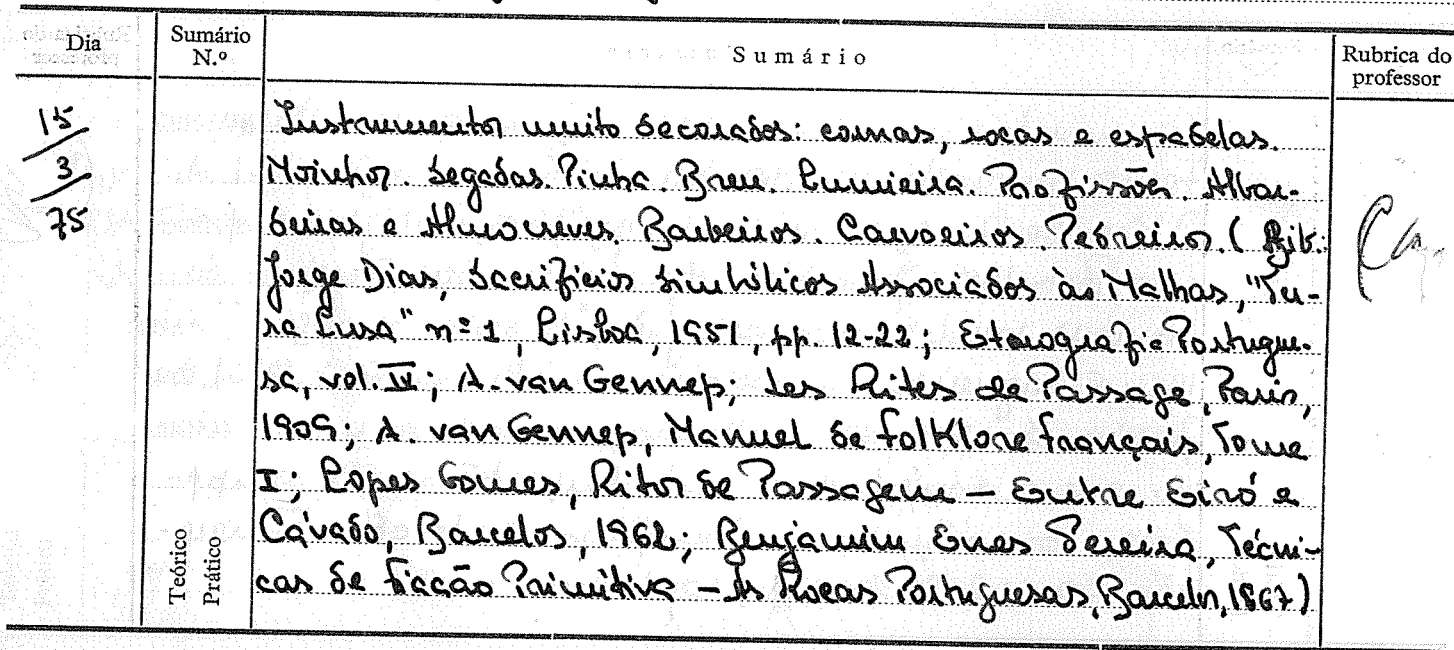 Dia
Sumário N.º
Sumário
Rubrica do professor
15/3/75
Instrumentos muito decorados: cornas, rocas e espadelas.
Moinhos. Segadas. Pinha. Breu. Lumieira. Profissões. Albar-
deiras e Almocreves. Barbeiros. Carvoeiros. Pedreiros. (Bib.:
Jorge Dias, Sacrifícios Simbólicos Associados às Malhas, "Te-
rra Lusa" nº 1, Lisboa, 1951, pp. 12-22; Etnografia Portugue-
sa, vol. IV; A. van Gennep; Les Rites de Passage, Paris,
1909; A. van Gennep, Manuel de folklore français, Tome
I; Lopes Gomes, Ritos de Passagem – Entre Eiró e
Cávado, Barcelos, 1962; Benjamim Enes Pereira, Técni-
cas de fiação Primitiva – As Rocas Portuguesas, Barcelos, 1967)
Teórico
Prático